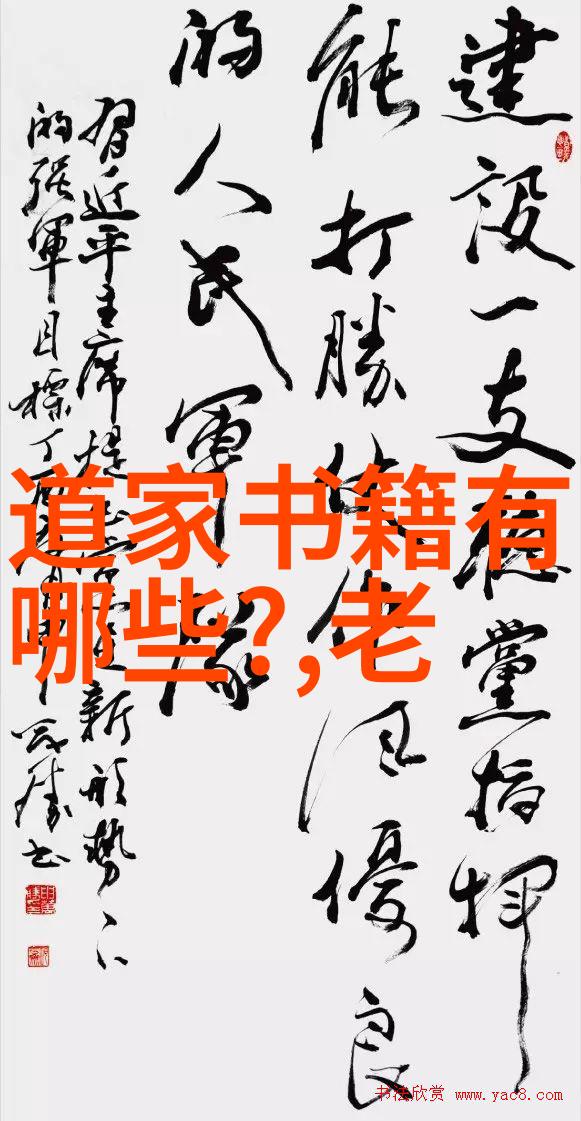 建設一支聽黨指揮
能打勝仗作風優良
的人民軍隊
習近平主席提出
新形勢下
的强軍目標丁酉
道家书籍有
哪些?,老
书法欣赏 www.yac8.com